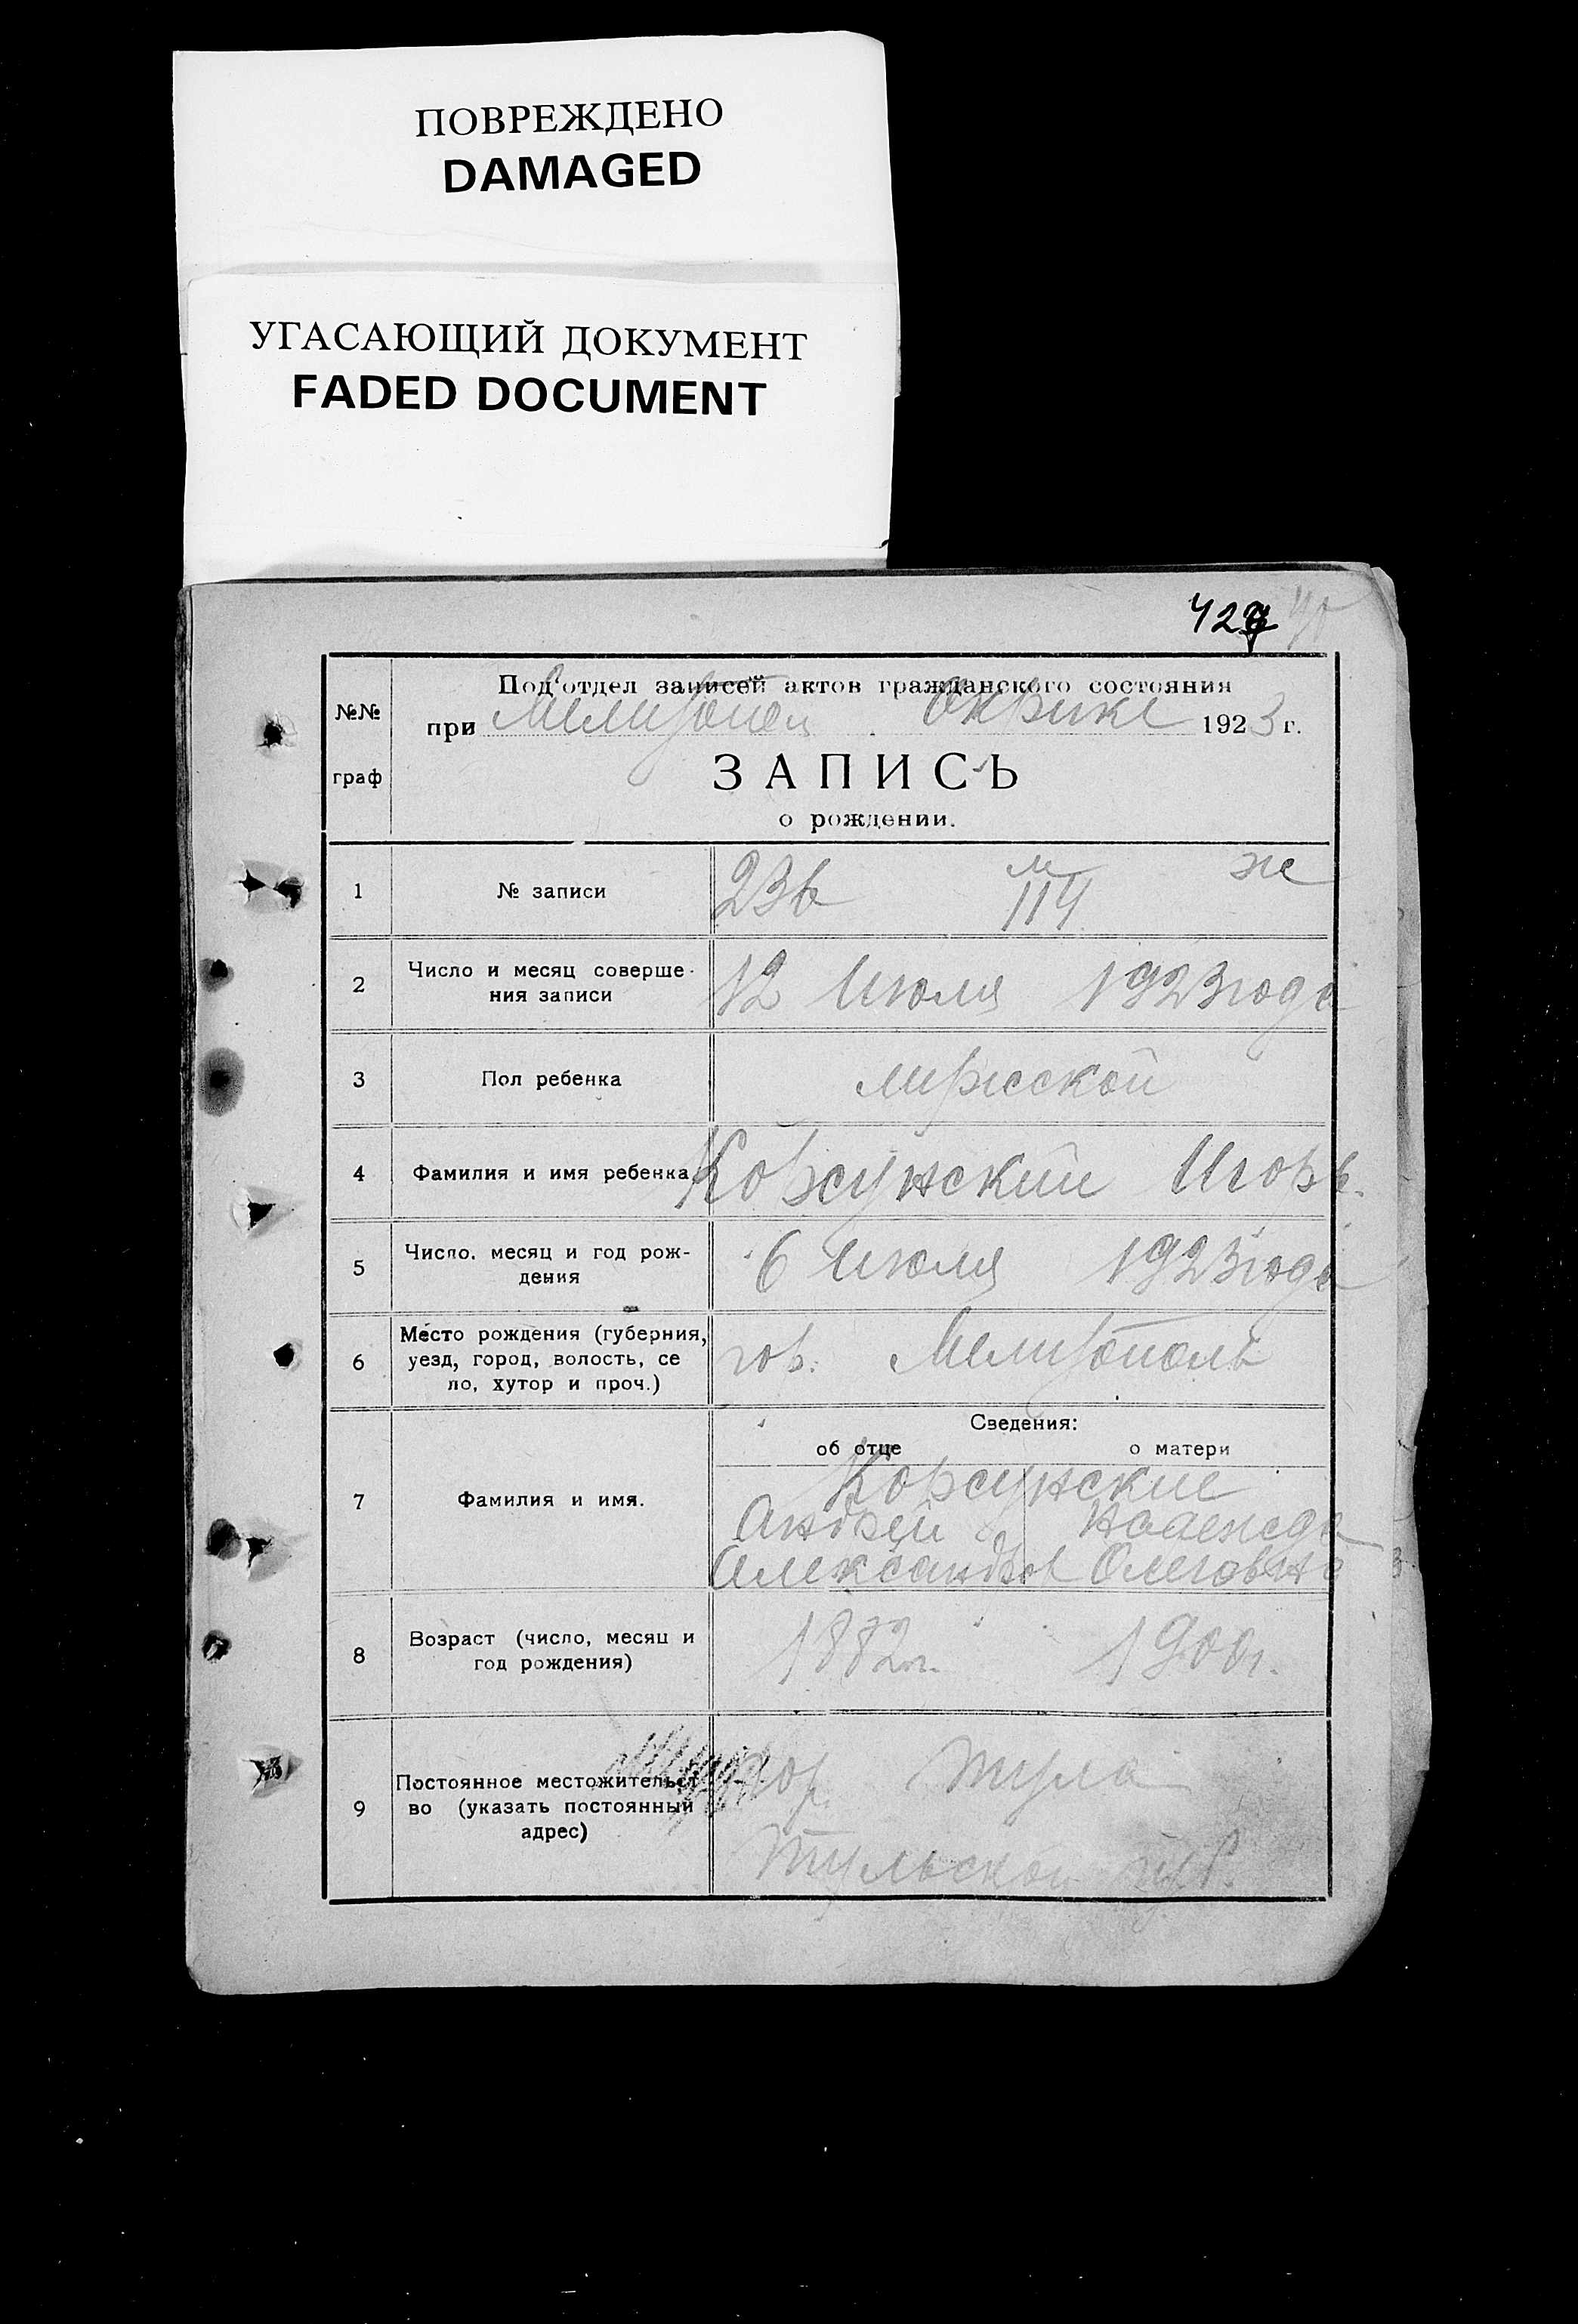 ПОВРЕЖДЕНО
DAMAGED
УГАСАЮЩИЙ ДОКУМЕНТ
FADED DOCUMENT
№№ граф
Под'отдел записей актов гражданского состояния
при Мелитопол Окрике 1923 г.
ЗАПИСЬ
о рождении.
1 № записи 236 м 114 ж
2 Число и месяц соверше-
ния записи 12 Июля 1923 года
3 Пол ребенка мужской
4 Фамилия и имя ребенка Корсунский Игорь.
5 Число, месяц и год рож-
дения 6 Июля 1923 года
6 Место рождения (губерния,
уезд, город, волость, се
ло, хутор и проч.) гор. Мелитополь
Сведения:
об отце о матери
7 Фамилия и имя. Корсунские
Андрей Надежда
Александров Олеговна
8 Возраст (число, месяц и
год рождения) 1882 г. 1900 г.
9 Постоянное местожительст
во (указать постоянный
адрес) гор. Тула
Тульской губ.